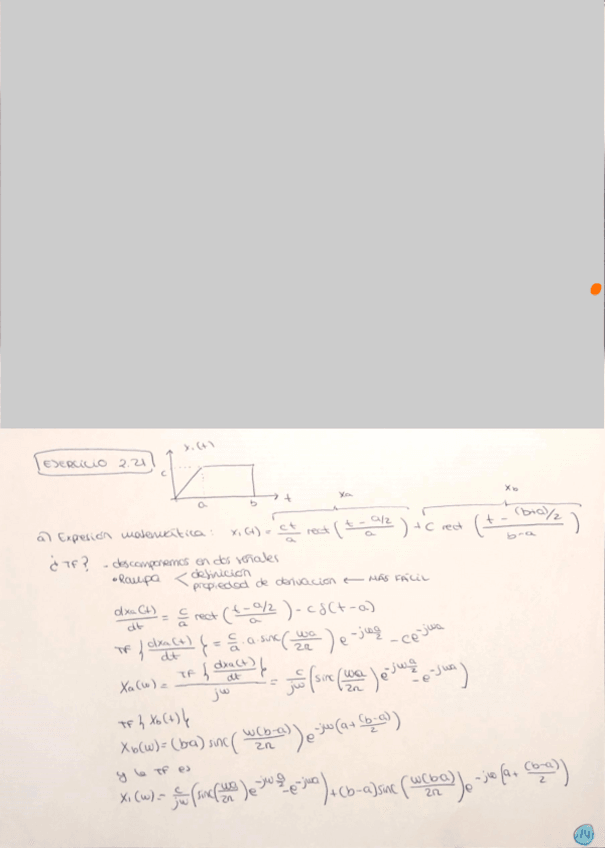 EJERCICIO 2.21
x₁(t)
c
a b t
xa xb
a) Expresión matemática: x₁(t) = ct/a rect((t - a/2)/a) + c rect((t - (b+a)/2)/(b-a))
¿TF? - descomponemos en dos señales
• Rampa < definición
propiedad de derivación ← MÁS FÁCIL
dxa(t)/dt = c/a rect((t - a/2)/a) - cδ(t-a)
TF{dxa(t)/dt} = c/a · a sinc(wa/2π) e^(-jwa/2) - ce^(-jwa)
Xa(w) = TF{dxa(t)/dt}/jw = c/jw (sinc(wa/2π) e^(-jwa/2) - e^(-jwa))
TF{Xb(t)}
Xb(w) = (b-a) sinc(w(b-a)/2π) e^(-jw(a+(b-a)/2))
y la TF es
X₁(w) = c/jw (sinc(wa/2π) e^(-jwa/2) - e^(-jwa)) + (b-a) sinc(w(b-a)/2π) e^(-jw(a+(b-a)/2))
14